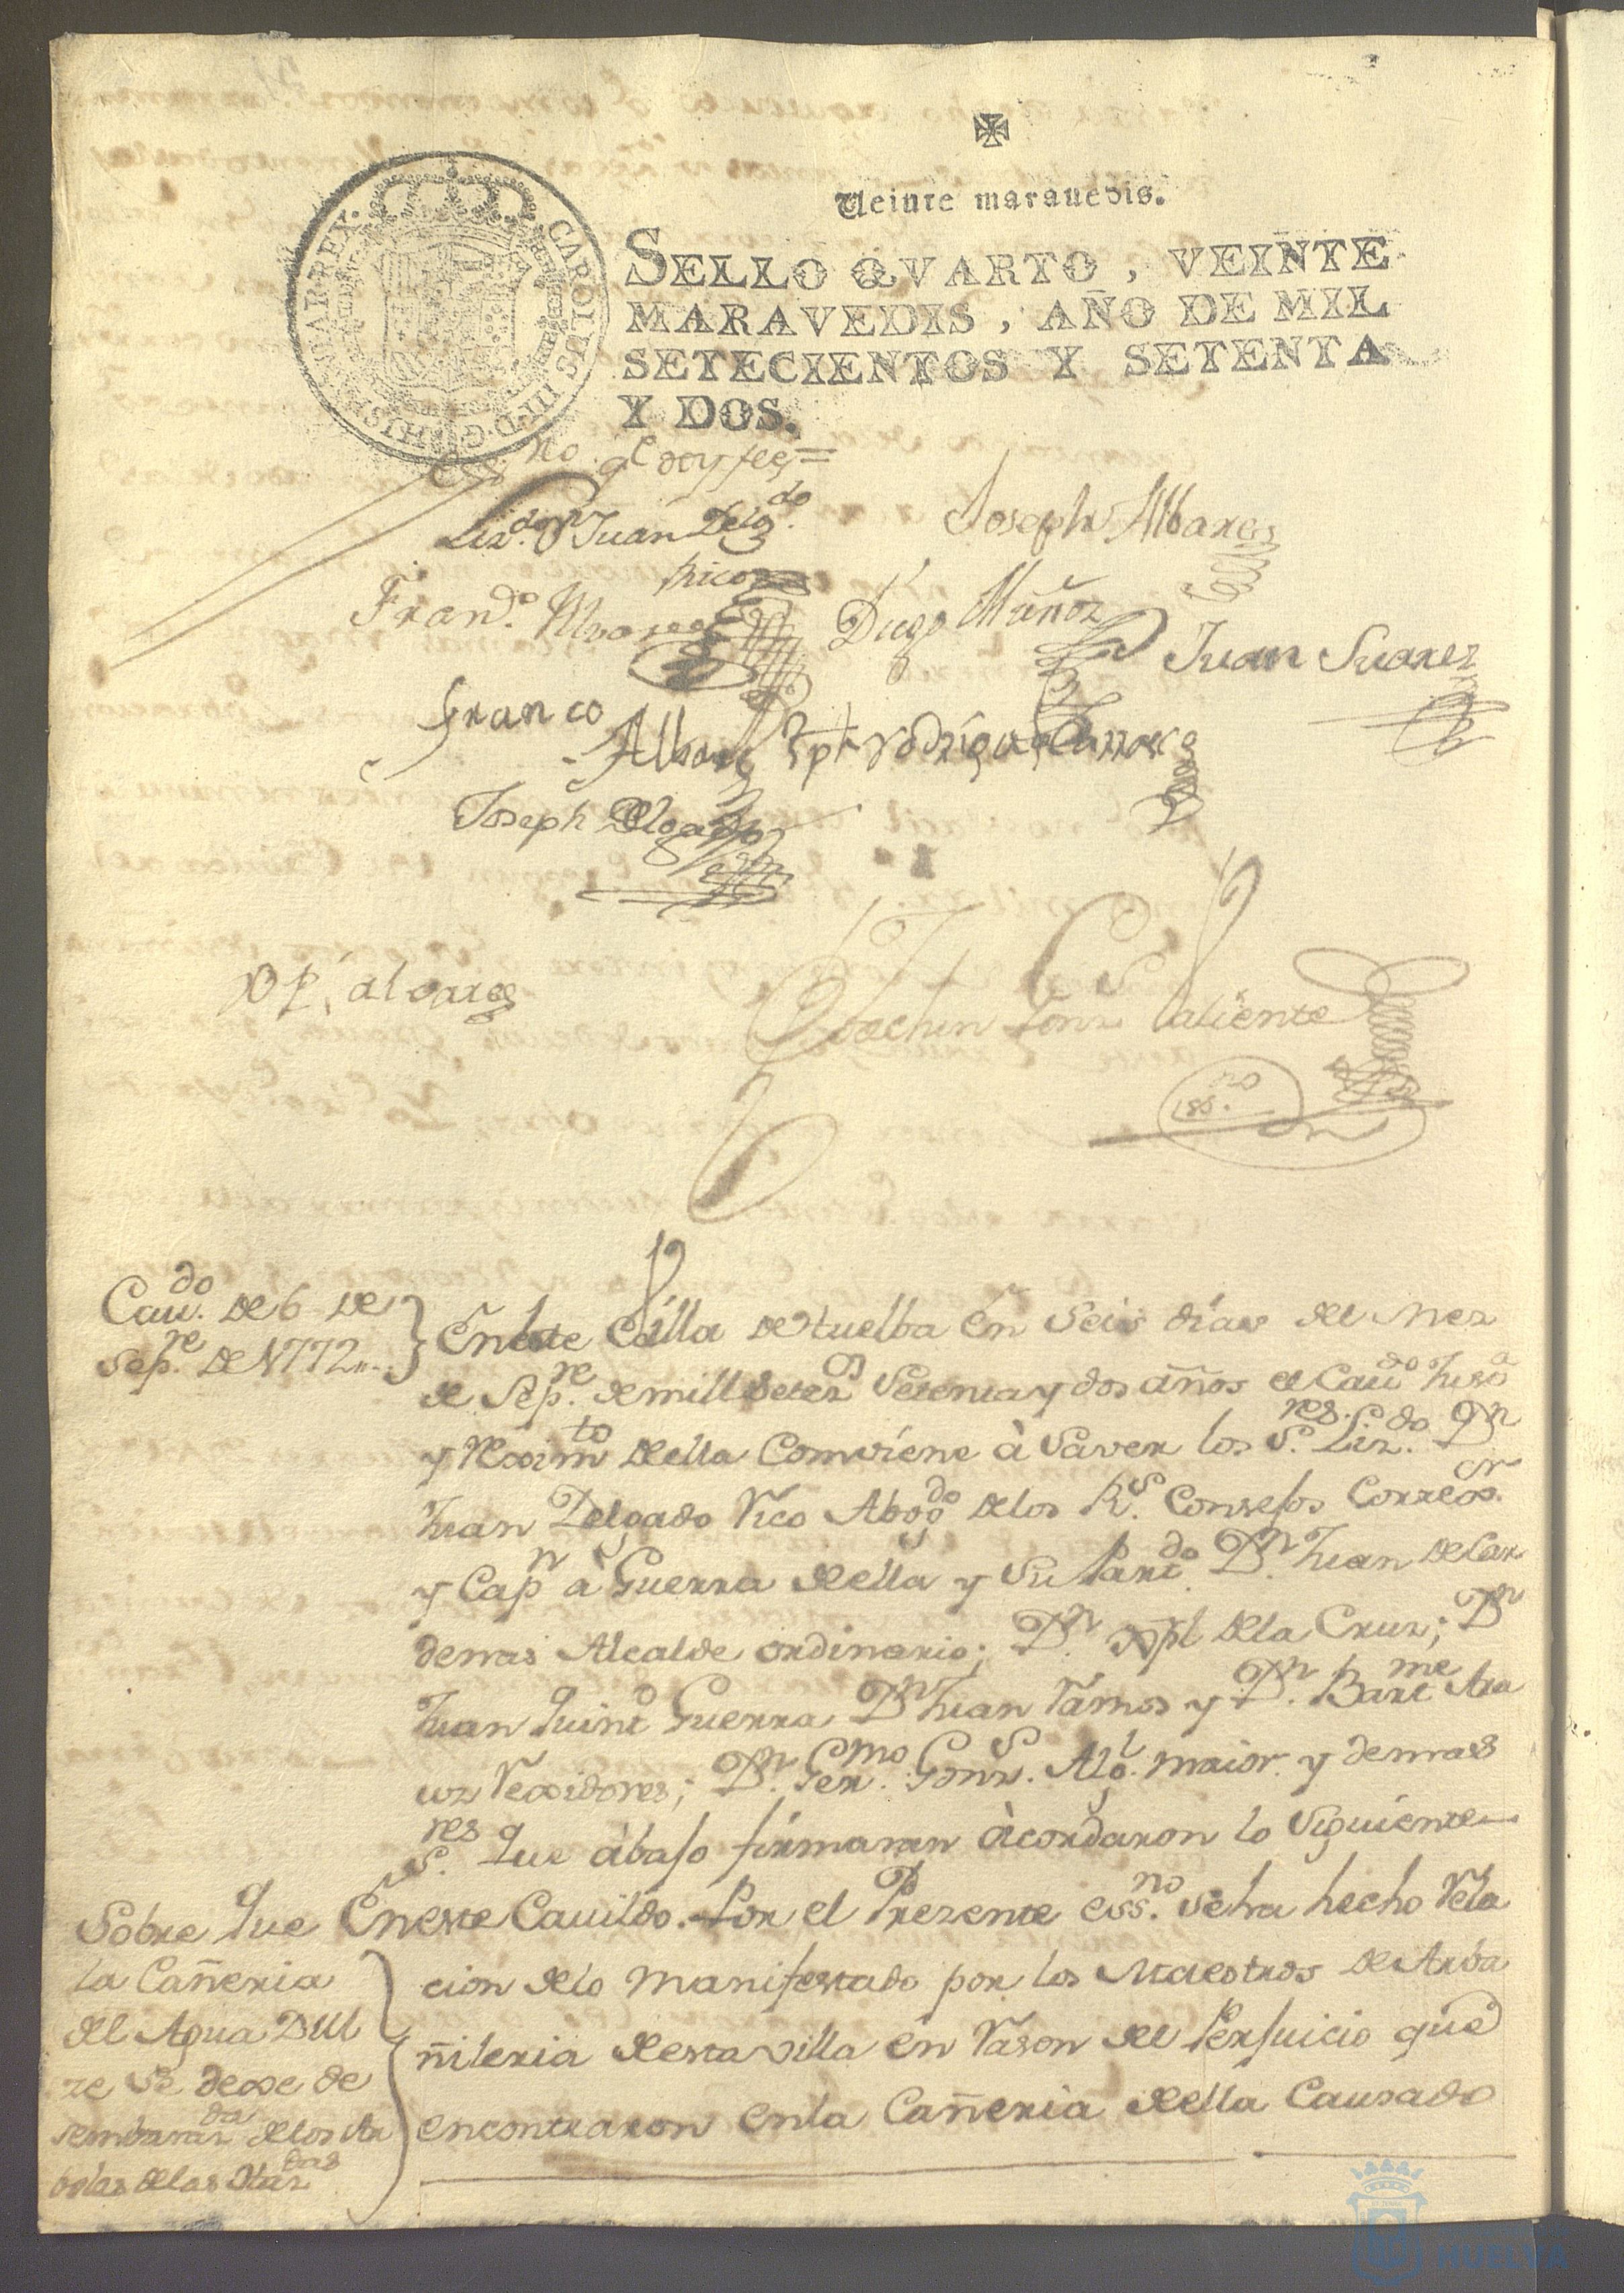 Veinte marauedis.
SELLO QVARTO, VEINTE
MARAVEDIS, AÑO DE MIL
SETECIENTOS Y SETENTA
Y DOS.
CAROLUS III D.G. HISPANIAR REX
essno. qe doy fee=
Lizdo. Dn Juan Delgdo.
Rico
Joseph Albares
Frando. Alvares
Diego Muñoz
Juan Suarez
Franco
Albarez
rodriguez
Joseph Delgado
alvares
Joachin Gonz Valiente
essno.
Caudo. de 6 de
Sepre. de 1772
En la Villa de Huelba en Seis dias del mes
de Sepre. de mill setezos Setenta y dos años el Caudo Justa
y Reximto della Comviene à Saver los Sres. Lizdo. Dn
Juan Delgado Rico Abogdo delos Rs. Consejos Correor.
y Capn à Guerra della y su Partdo. Dn. Juan de Car
denas Alcalde ordinario; Dn. Xpl dela Cruz; Dn
Juan Quinto Guerra Dn Juan Rámos y Dn. Barme Ara
uz Rexidores; Dn. Germo Gonzs. Algl. maior y demas
Sres. que àbajo firmaran àcordaron lo Siguiente
Sobre que
la Cañeria
del Agua Dul
ze se dexe de
sembarazda delos Ar
boles delas Huerdas
En este Cauildo. Por el Prezente essno. se ha hecho Rela
cion delo manifestado por los Maestros de Arba
ñileria desta villa en Rason del Perjuicio que
encontraron enla Cañeria della Causado
HUELVA